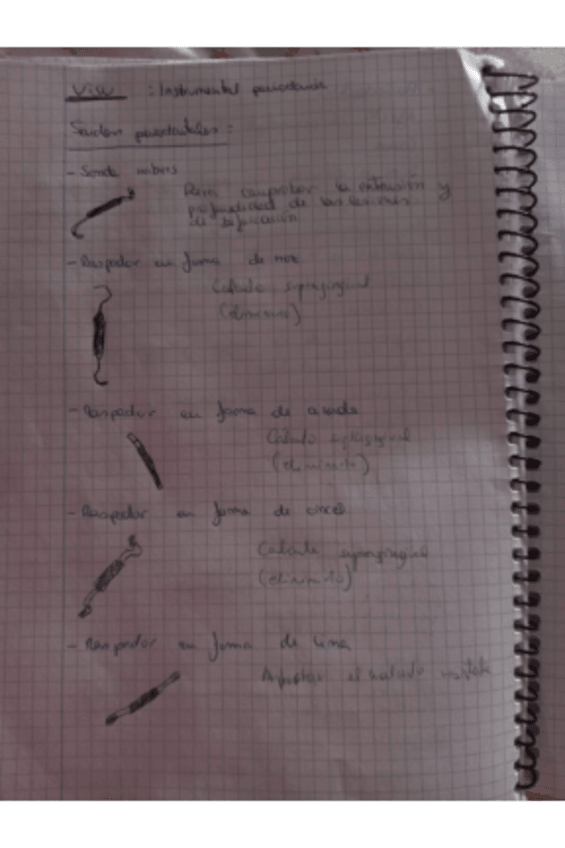 : Instrumental
- Sonda nabers
Para comprobar la extensión y
profundidad de las lesiones
de bifurcación
- Raspador en forma de hoz
Calculo supragingival
(eliminarlo)
- Raspador en forma de azada
Calculo supragingival
(eliminarlo)
- Raspador en forma de cincel
Calculo supragingival
(eliminarlo)
- Raspador en forma de lima
el